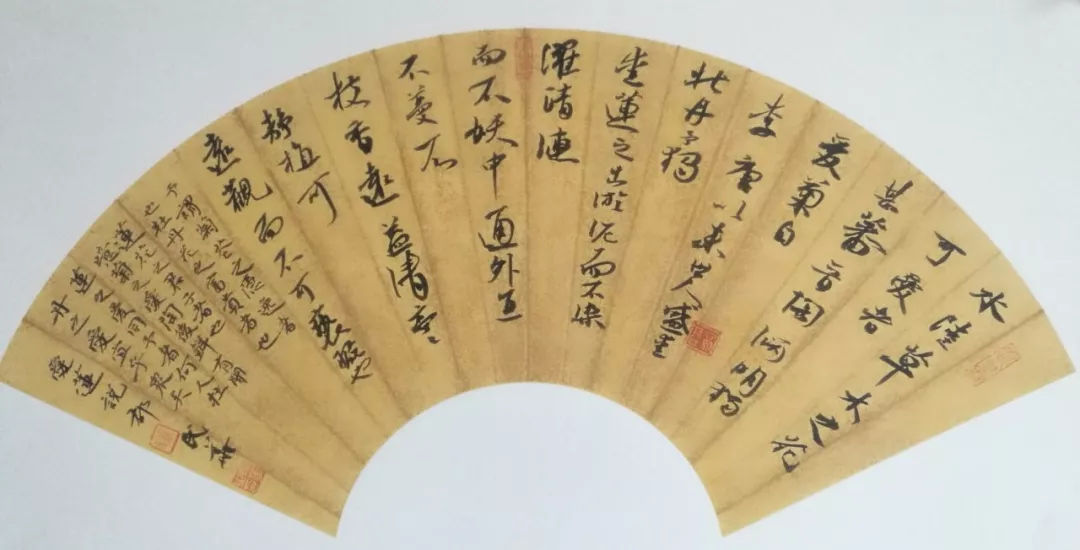 水陸草木之花
可愛者
甚蕃晉陶渊明獨
愛菊自
李唐以來世人盛愛
牡丹予獨
愛蓮之出淤泥而不染
濯清漣
而不妖中通外直
不蔓不
枝香遠益清亭亭
静植可
遠觀而不可褻玩焉
予謂菊花之隱逸者
也牡丹花之富貴者也
蓮花之君子者也
噫菊之愛陶後鮮有聞
蓮之愛同予者何人牡
丹之愛宜乎衆矣
愛蓮說 邵民